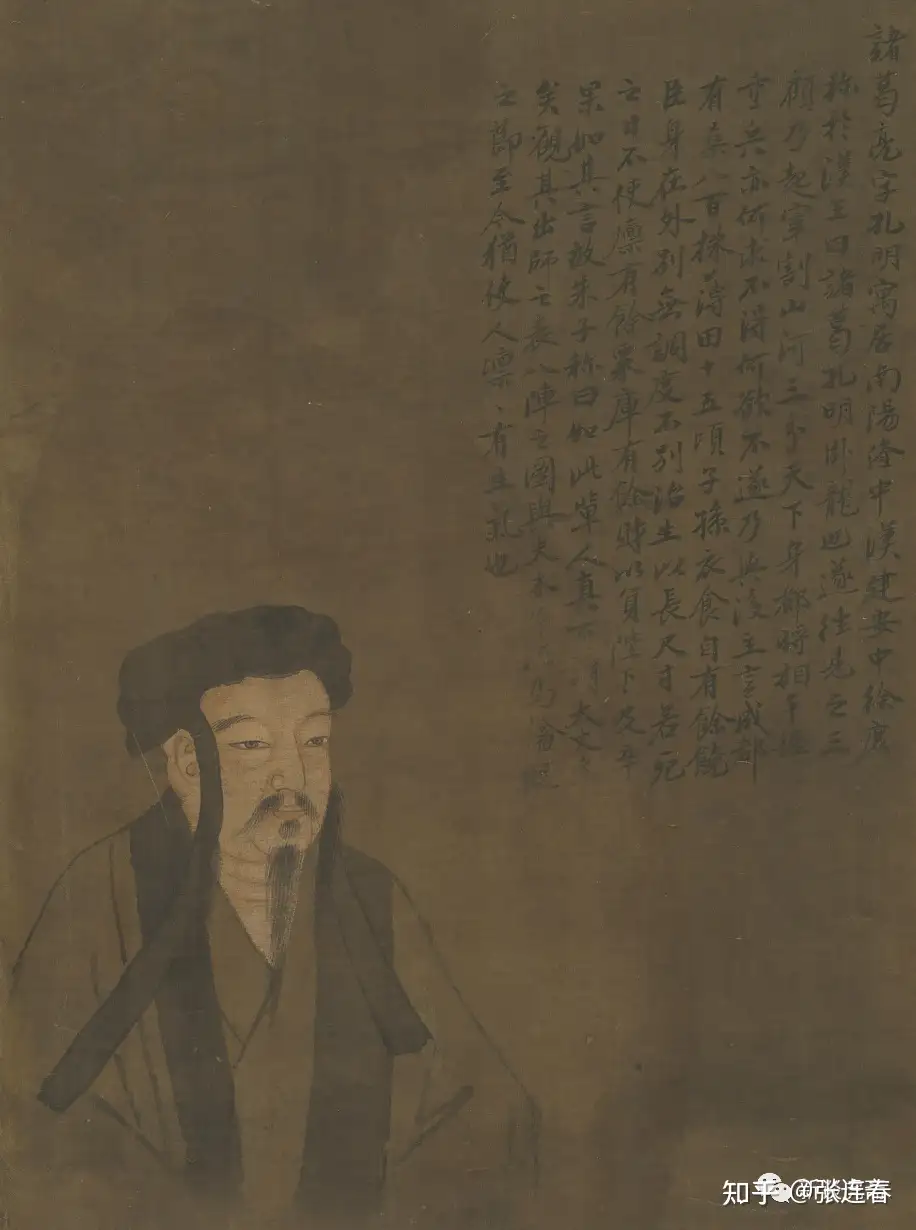 諸葛亮字孔明寓居南陽隆中漢建安中徐庶
称於漢主曰諸葛孔明卧龍也遂往見之三
顧乃起穿割山河三分天下身都將相手握
重兵亦何求不得何欲不遂乃與後主言成都
有桑八百株薄田十五頃子孫衣食自有餘饒
臣身在外別無調度不別治生以長尺寸若死
之日不使廩有餘粟庫有餘財以負陛下及卒
果如其言故朱子称曰如此輩人真可謂大丈夫
矣觀其出師之表八陣之圖與夫木
之節至今猶使人凛、有生氣也
知乎 @张连春